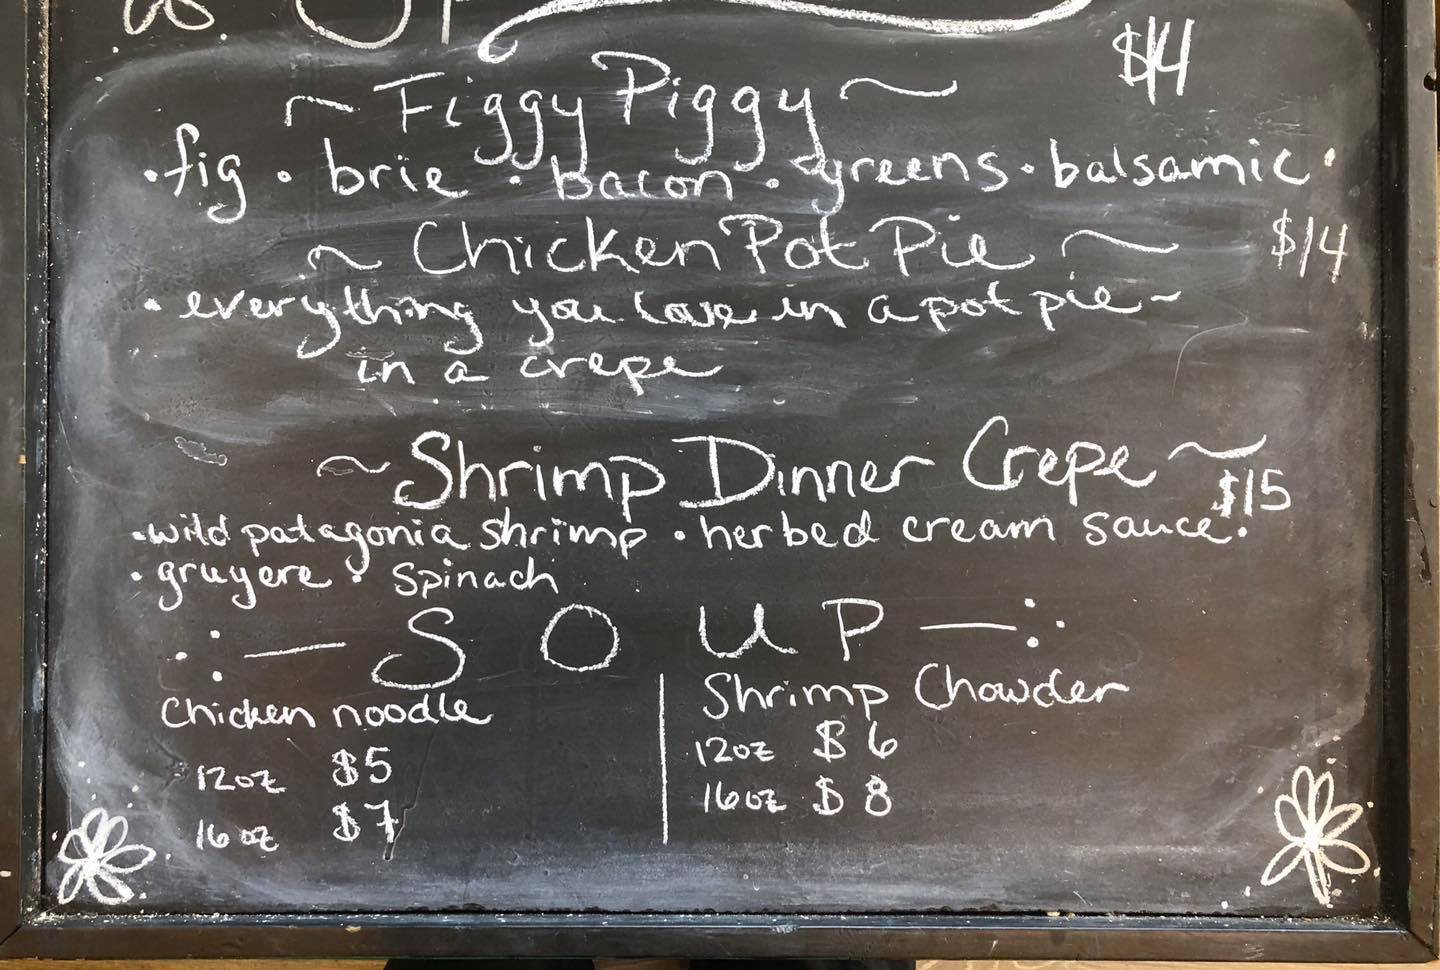 $14
~ Figgy Piggy ~
• fig • brie • bacon • greens • balsamic •
~ Chicken Pot Pie ~ $14
• everything you love in a pot pie ~
in a crepe
~ Shrimp Dinner Crepe ~
$15
• wild patagonia shrimp • herbed cream sauce •
• gruyere • spinach
S O U P
Chicken noodle
12oz $5
16oz $7
Shrimp Chowder
12oz $6
16oz $8